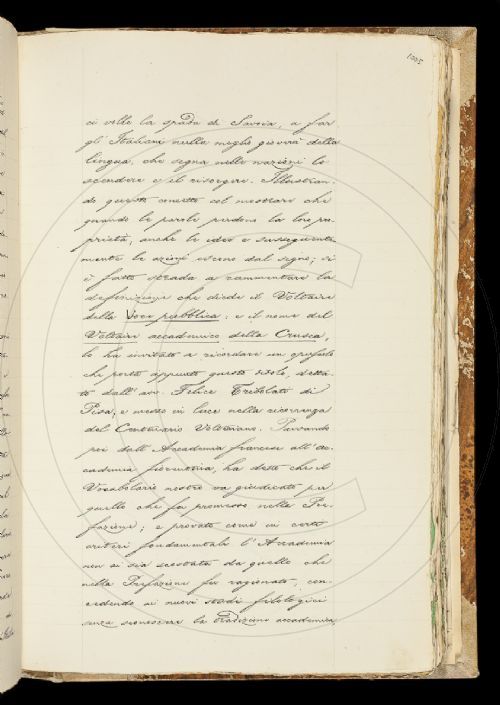 1005
ci volle la spada di Savoia, a far
gl'Italiani nulla meglio gioverà della
lingua, che segna nelle nazioni lo
scendere e il risorgere. Illustran-
do questo concetto col mostrare che
quando le parole perdono la loro pro-
prietà, anche le idee e susseguente-
mente le azioni escono dal segno; si
è fatto strada a rammentare la
definizione che diede il Voltaire
della Voce pubblica: e il nome del
Voltaire accademico della Crusca,
lo ha invitato a ricordare un opuscolo
che porta appunto questo titolo, detta-
to dall'avv. Felice Tribolati di
Pisa, e messo in luce nella ricorrenza
del Centenario Volteriano. Passando
poi dall'Accademia francese all'Ac-
cademia fiorentina, ha detto che il
Vocabolario nostro va giudicato per
quello che fu promesso nella Pre-
fazione; e provato come in certi
criteri fondamentali l'Accademia
non si sia scostata da quello che
nella Prefazione fu ragionato, con-
cedendo ai nuovi studi filologici
senza sconoscere la tradizione accademica,